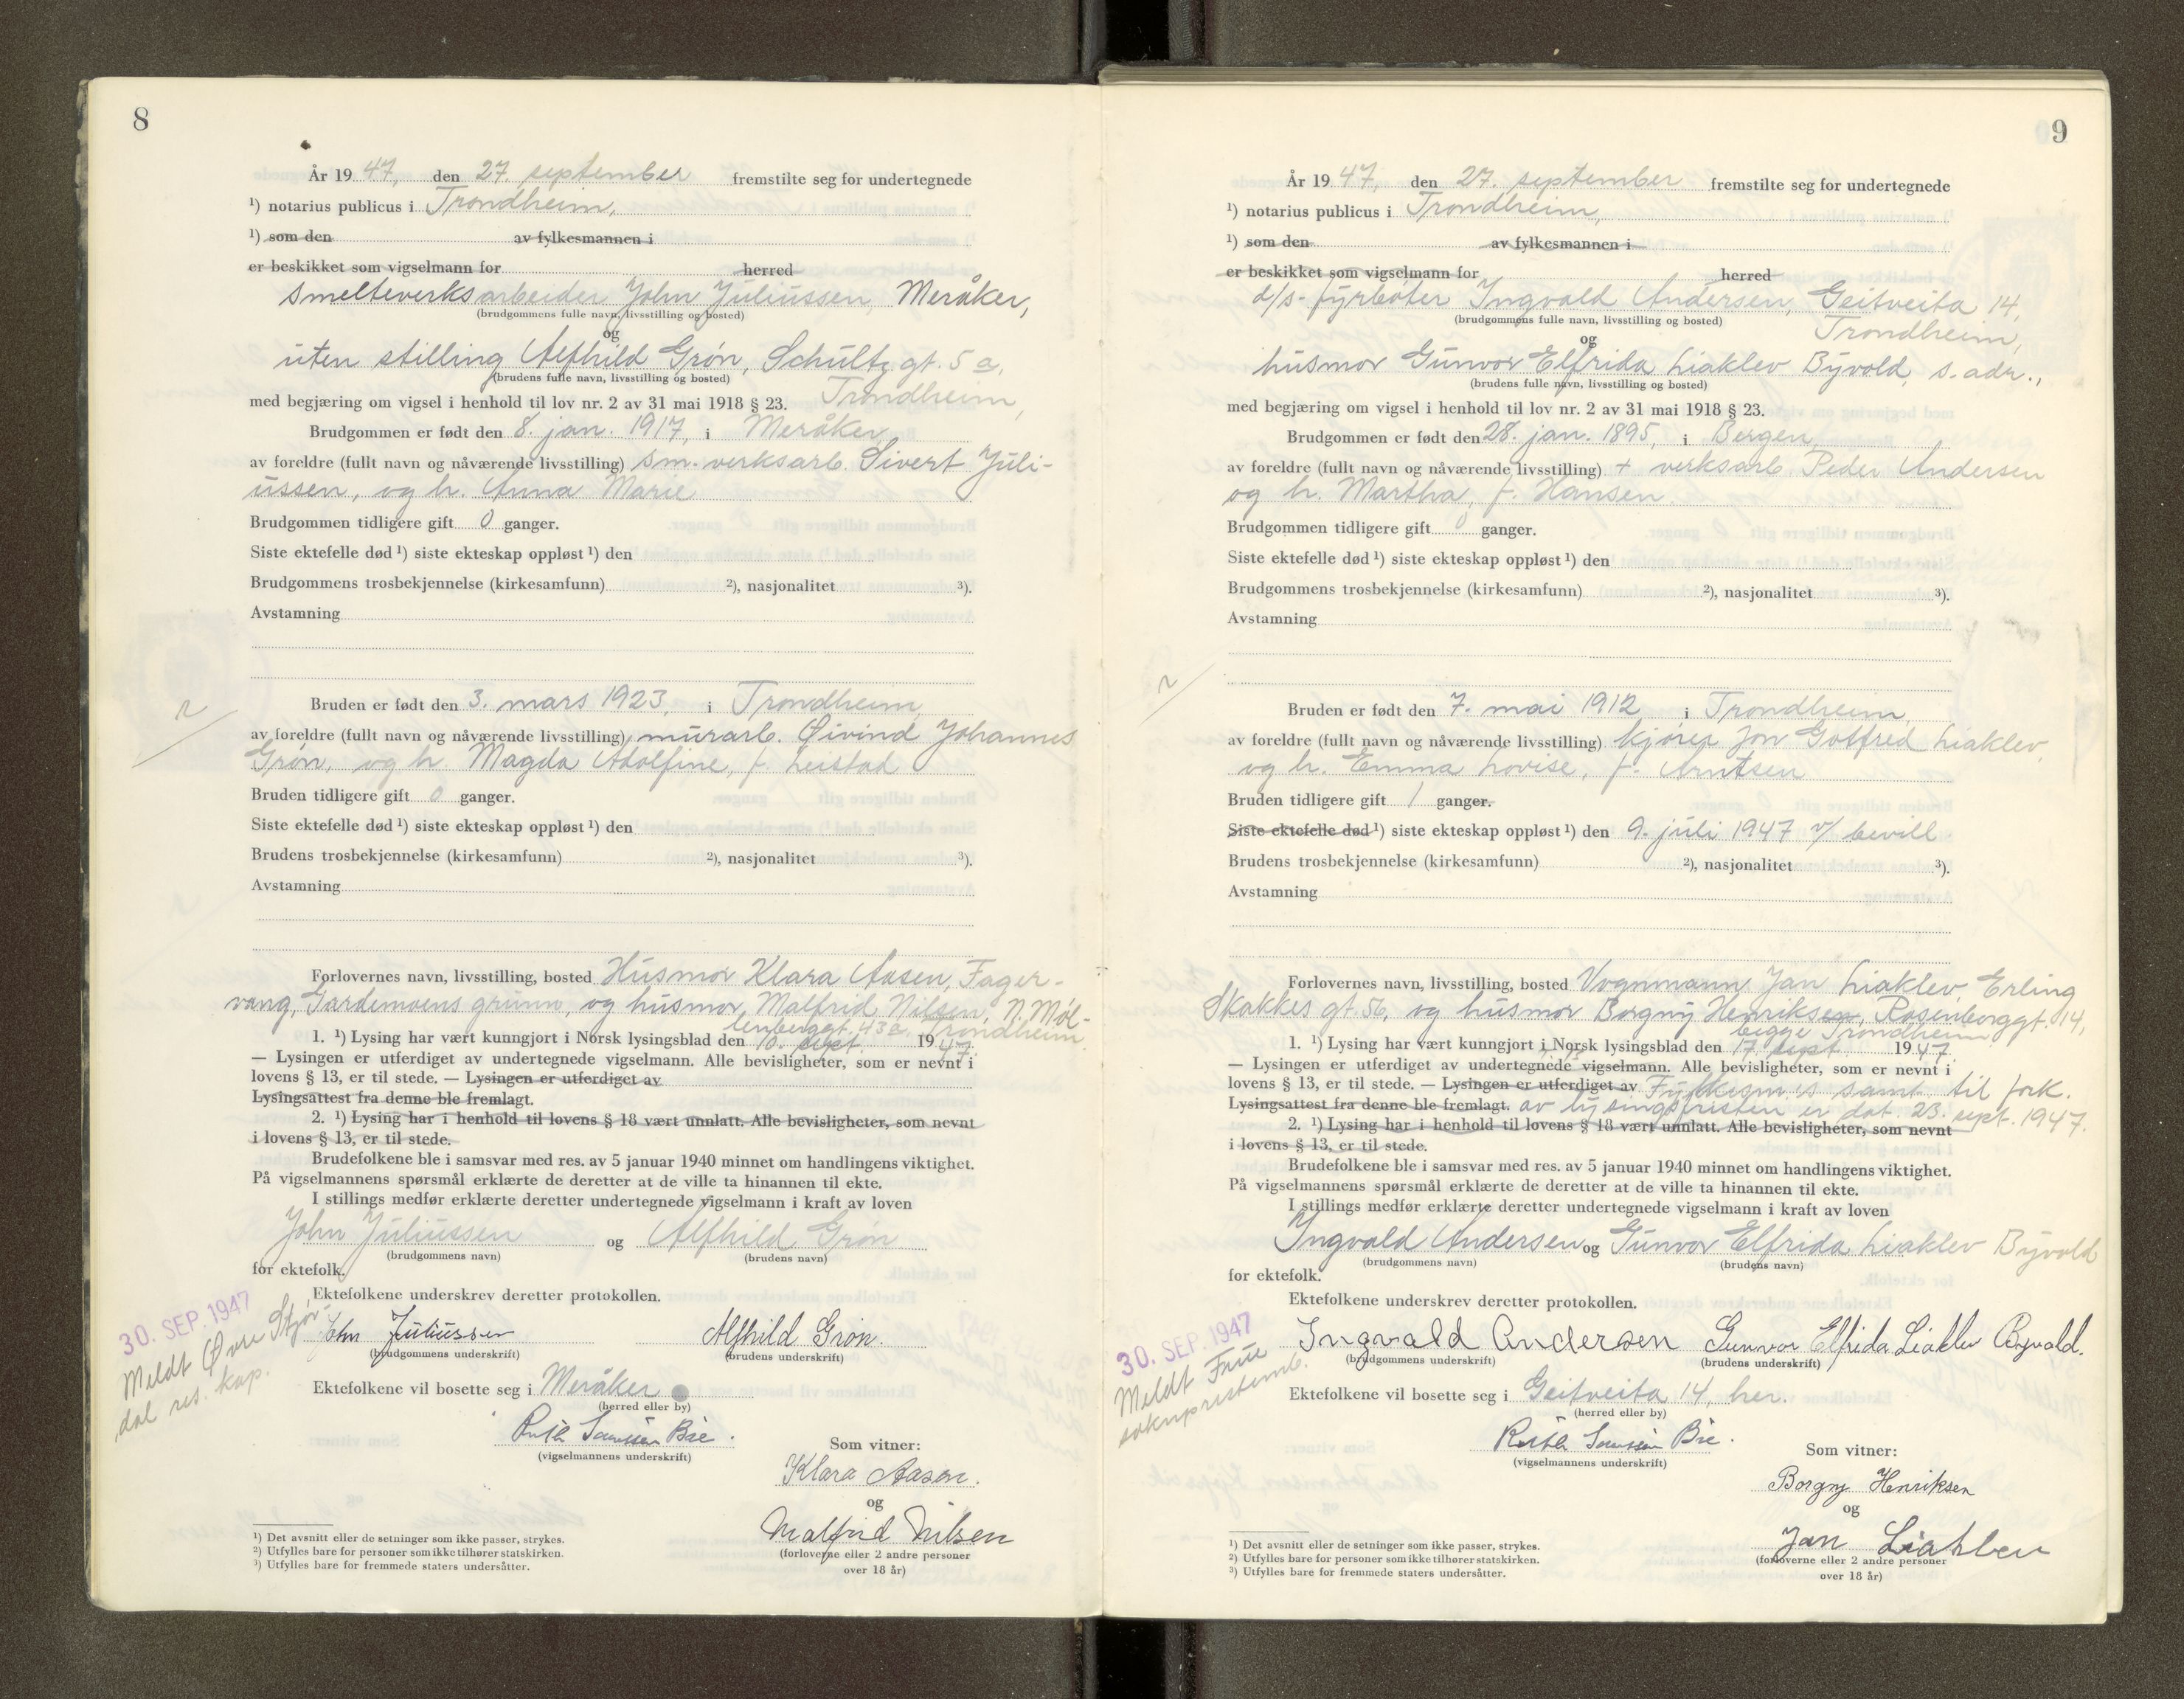 8
År 1947, den 27. september fremstilte seg for undertegnede
¹) notarius publicus i Trondheim,
¹) som den av fylkesmannen i
er beskikket som vigselmann for herred
smelteverksarbeider John Juliussen, Meråker,
(brudgommens fulle navn, livsstilling og bosted)
og
uten stilling Alfhild Grøn, Schultz gt. 5 a,
(brudens fulle navn, livsstilling og bosted)
Trondheim,
med begjæring om vigsel i henhold til lov nr. 2 av 31 mai 1918 § 23.
Brudgommen er født den 8. jan. 1917, i Meråker
av foreldre (fullt navn og nåværende livsstilling) sm.verksarb. Sivert Juli-
ussen, og h. Anna Marie
Brudgommen tidligere gift 0 ganger.
Siste ektefelle død ¹) siste ekteskap oppløst ¹) den
Brudgommens trosbekjennelse (kirkesamfunn) ²), nasjonalitet ³).
Avstamning
Bruden er født den 3. mars 1923, i Trondheim
av foreldre (fullt navn og nåværende livsstilling) murarb. Øivind Johannes
Grøn, og h. Magda Adolfine, f. Leistad
Bruden tidligere gift 0 ganger.
Siste ektefelle død ¹) siste ekteskap oppløst ¹) den
Brudens trosbekjennelse (kirkesamfunn) ²), nasjonalitet ³).
Avstamning
Forlovernes navn, livsstilling, bosted Husmor Klara Aasen, Fager-
vang, Gardemoens grunn, og husmor Malfrid Nilsen, N. Møl-
lenberggt. 43 a Trondheim.
1. ¹) Lysing har vært kunngjort i Norsk lysingsblad den 10. sept. 1947.
— Lysingen er utferdiget av undertegnede vigselmann. Alle bevisligheter, som er nevnt i
lovens § 13, er til stede. — Lysingen er utferdiget av
Lysingsattest fra denne ble fremlagt.
2. ¹) Lysing har i henhold til lovens § 18 vært unnlatt. Alle bevisligheter, som nevnt
i lovens § 13, er til stede.
Brudefolkene ble i samsvar med res. av 5 januar 1940 minnet om handlingens viktighet.
På vigselmannens spørsmål erklærte de deretter at de ville ta hinannen til ekte.
I stillings medfør erklærte deretter undertegnede vigselmann i kraft av loven
John Juliussen og Alfhild Grøn
(brudgommens navn) (brudens navn)
for ektefolk.
Ektefolkene underskrev deretter protokollen.
30. SEP. 1947
Meldt Øvre Stjør-
dal res. kap.
John Juliussen Alfhild Grøn.
(brudgommens underskrift) (brudens underskrift)
Ektefolkene vil bosette seg i Meråker
(herred eller by)
(vigselmannens underskrift)
Som vitner:
Klara Aasen.
og
Malfrid Nilsen
(forloverne eller 2 andre personer
over 18 år)
¹) Det avsnitt eller de setninger som ikke passer, strykes.
²) Utfylles bare for personer som ikke tilhører statskirken.
³) Utfylles bare for fremmede staters undersåtter.
9
År 1947, den 27. september fremstilte seg for undertegnede
¹) notarius publicus i Trondheim,
¹) som den av fylkesmannen i
er beskikket som vigselmann for herred
d/s- fyrbøter Ingvald Andersen, Geitveita 14,
(brudgommens fulle navn, livsstilling og bosted)
Trondheim,
og
husmor Gunvor Elfrida Liaklev Byvold, s. adr.,
(brudens fulle navn, livsstilling og bosted)
med begjæring om vigsel i henhold til lov nr. 2 av 31 mai 1918 § 23.
Brudgommen er født den 28. jan. 1895, i Bergen,
av foreldre (fullt navn og nåværende livsstilling) + verksarb. Peder Andersen
og h. Martha, f. Hansen
Brudgommen tidligere gift 0 ganger.
Siste ektefelle død ¹) siste ekteskap oppløst ¹) den
Brudgommens trosbekjennelse (kirkesamfunn) ²), nasjonalitet ³).
Avstamning
Bruden er født den 7. mai 1912 i Trondheim,
av foreldre (fullt navn og nåværende livsstilling) kjører Jon Gotfred Liaklev,
og h. Emma Lovise, f. Arntsen
Bruden tidligere gift 1 ganger.
Siste ektefelle død ¹) siste ekteskap oppløst ¹) den 9. juli 1947 v/ bevill
Brudens trosbekjennelse (kirkesamfunn) ²), nasjonalitet ³).
Avstamning
Forlovernes navn, livsstilling, bosted Vognmann Jan Liaklev, Erling
Skakkes gt 56, og husmor Borgny Henriksen, Rosenborggt. 14,
begge Trondheim
1. ¹) Lysing har vært kunngjort i Norsk lysingsblad den 17. sept 1947
— Lysingen er utferdiget av undertegnede vigselmann. Alle bevisligheter, som er nevnt i
lovens § 13, er til stede. — Lysingen er utferdiget av Fylkesm's samt. til fork.
Lysingsattest fra denne ble fremlagt. av lysingsfristen er dat. 23. sept. 1947.
2. ¹) Lysing har i henhold til lovens § 18 vært unnlatt. Alle bevisligheter, som nevnt
i lovens § 13, er til stede.
Brudefolkene ble i samsvar med res. av 5 januar 1940 minnet om handlingens viktighet.
På vigselmannens spørsmål erklærte de deretter at de ville ta hinannen til ekte.
I stillings medfør erklærte deretter undertegnede vigselmann i kraft av loven
Ingvald Andersen og Gunvor Elfrida Liaklev Byvold
(brudgommens navn) (brudens navn)
for ektefolk.
Ektefolkene underskrev deretter protokollen.
30. SEP. 1947
Meldt Frue
sokneprestemb.
Ingvald Andersen Gunvor Elfrida Liaklev Byvold.
(brudgommens underskrift) (brudens underskrift)
Ektefolkene vil bosette seg i Geitveita 14, her.
(herred eller by)
(vigselmannens underskrift)
Som vitner:
Borgny Henriksen
og
Jan Liaklev
(forloverne eller 2 andre personer
over 18 år)
¹) Det avsnitt eller de setninger som ikke passer, strykes.
²) Utfylles bare for personer som ikke tilhører statskirken.
³) Utfylles bare for fremmede staters undersåtter.